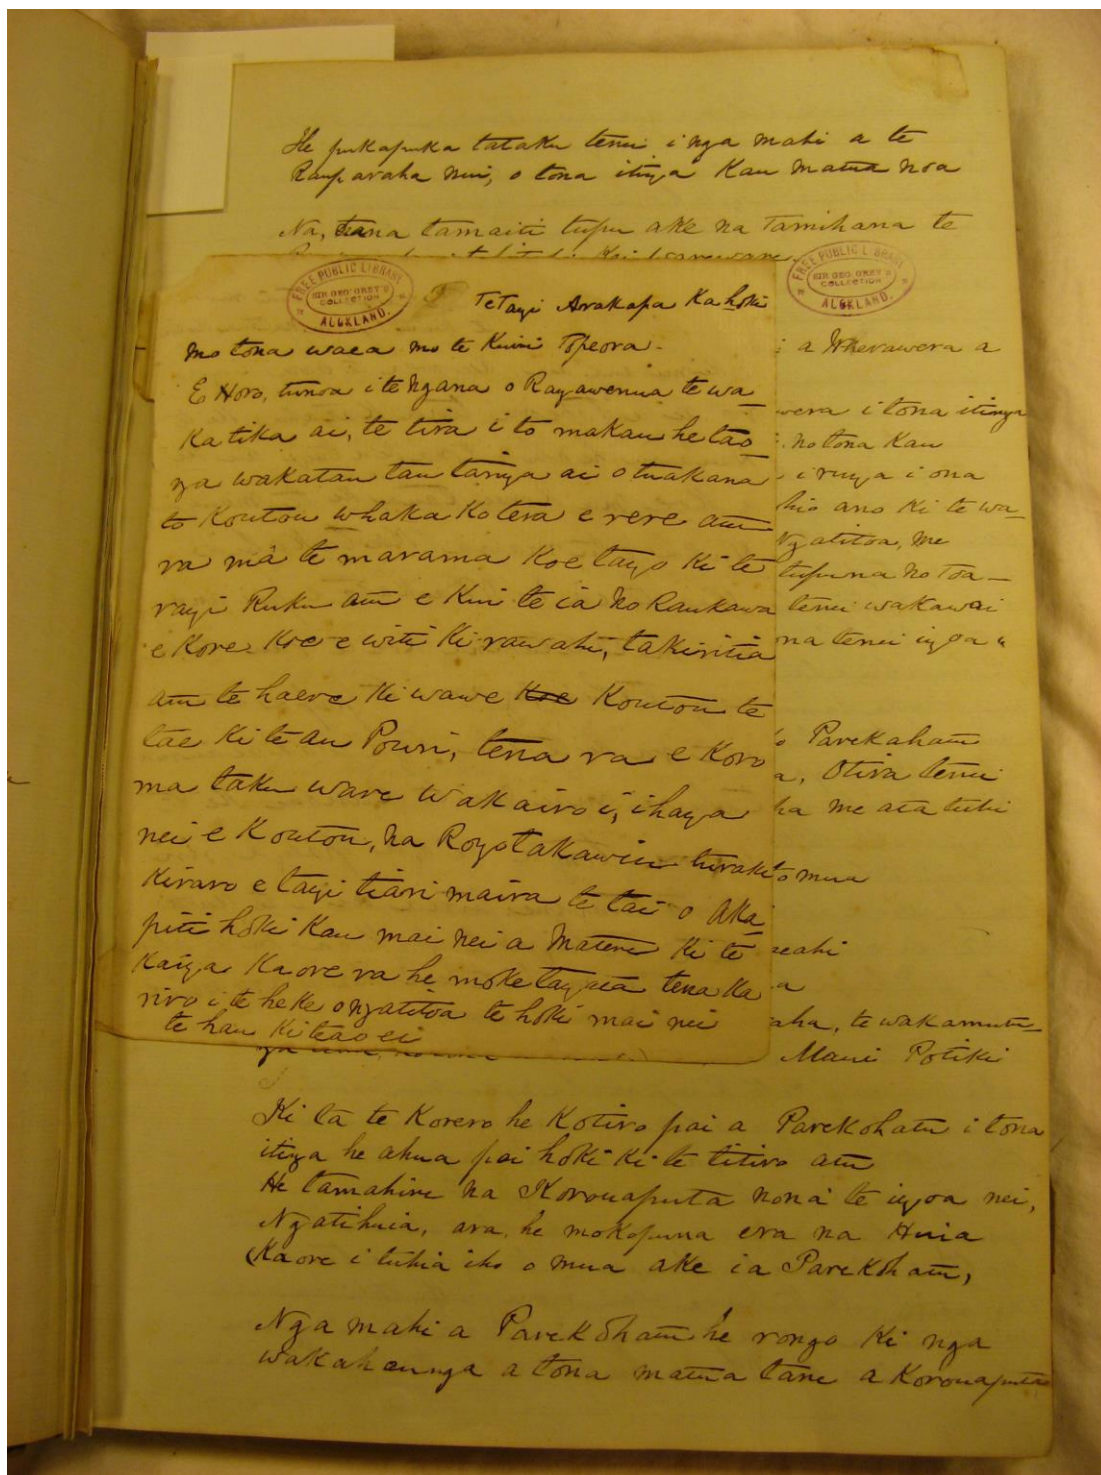 He pukapuka tataku tenei i nga mahi a te
Rauparaha nui, o tona itinga Kau matua noa
Na, tana tamaiti tupu ake na Tamihana te
FREE PUBLIC LIBRARY
SIR GEO. GREY'S
COLLECTION
AUCKLAND.
FREE PUBLIC LIBRARY
SIR GEO. GREY'S
COLLECTION
AUCKLAND.
Te Tangi Arakapa Ka hoki
mo tona waea mo te Kuini Topeora.
E Horo, tunoa i te Ngana o Rangawenua te wa_
Ka tika ai, te tira i to makau he tao_
nga wakatau tau tanga ai o tuakana
to Koutou whaka Kotera e rere atu
ra ma te marama Koe tango Ki te
rangi Ruku atu e Kui te ia no Raukawa
e Kore Koe e witi Ki rawahi, takiritia
atu te haere Ki wawe Koe Koutou te
tae Ki te au Pouri, tena ra e Koro
ma taku ware wakairo i, ihanga
nei e Koutou, na Rongotakawiu turaki
Kiraro e tangi tiari maira te tai o Aka_
piti hoki Kau mai nei a Matene Ki te
Kainga Kaore ra he moke tangata tena Ka
riro i te heke o ngatitoa te hoki mai nei
te hau Ki te ao ei
a Wherawera a
wera i tona itinga
no tona Kau
i runga i ona
hio ano Ki te wa_
Ngatitoa, me
tupuna no Toa_
tenei wakawai
na tenei ingoa "
Parekahatu
a, Otira tenei
ha me ata tuhi
o mua
a
aha, te wakamutu_
Maui Potiki
Ki ta te Korero he Kotiro pai a Parekohatu i tona
itinga he ahua pai hoki Ki te titiro atu
He tamahine na Korouaputa nona te ingoa nei,
Ngatihuia, ara, he mokopuna era na Huia
(Kaore i tuhia iho o mua ake i a Parekohatu,
Nga mahi a Parekohatu he rongo Ki nga
wakahaunga a tona matua tane a Korouaputa